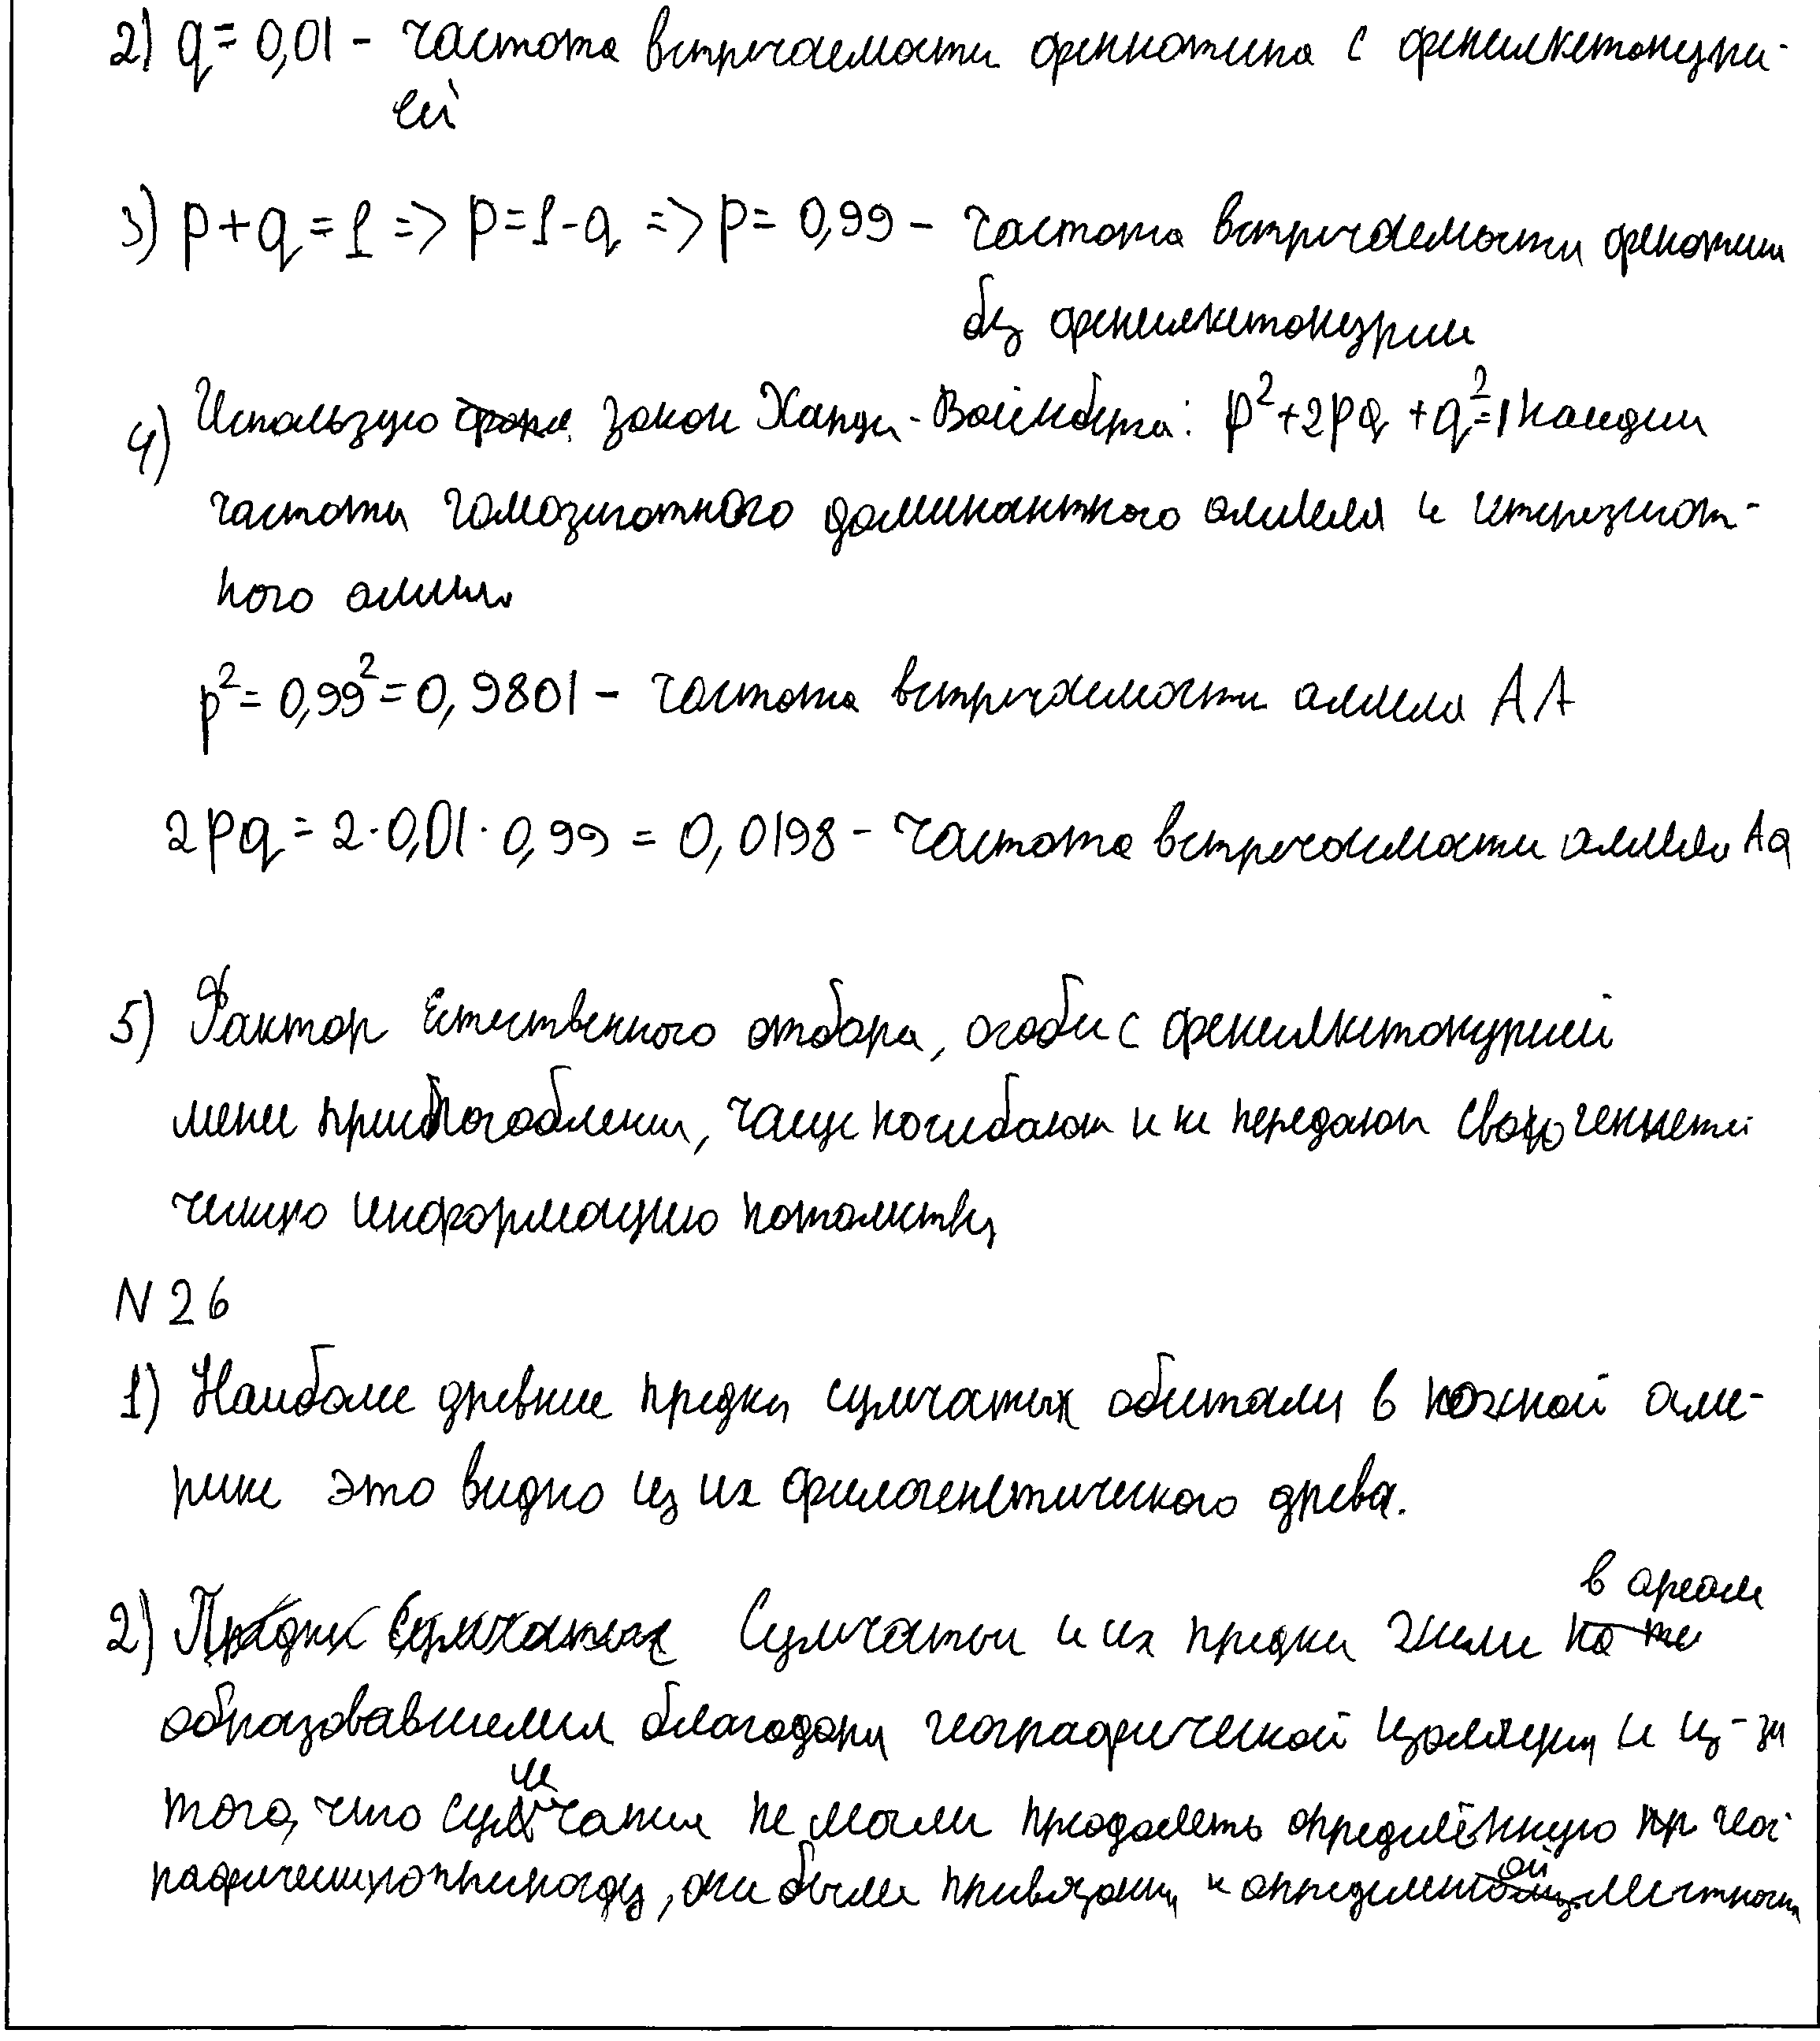 2) q = 0,01 - частота встречаемости фенкотипа с фенилкетонури-
ей
3) p+q = 1 => p=1-q => p= 0,99 - частота встречаемости фенотип
без фенилкетонурии
4) Использую закон Харди-Вайнберга: p²+2pq+q²=1 найдем
частоты гомозиготного доминантного аллеля и гетерозигот-
ного аллеля
p²= 0,99²= 0,9801 - частота встречаемости аллеля AA
2pq = 2·0,01·0,99 = 0,0198 - частота встречаемости аллеля Aa
5) Фактор Естественного отбора, особи с фенилкетонурией
менее приспособлены, чаще погибают и не передают свою генети
ческую информацию потомству
N 26
1) Наиболее древние предки сумчатых обитали в южной аме-
рике это видно из их филогенетического древа.
2) Предки Сумчатых Сумчатые и их предки жили в ареале
образовавшемся благодаря географической изоляции и из-за
того, что сумчатые не могли преодолеть определённую гео
рафическую преграду, они были привязаны к определенной местности